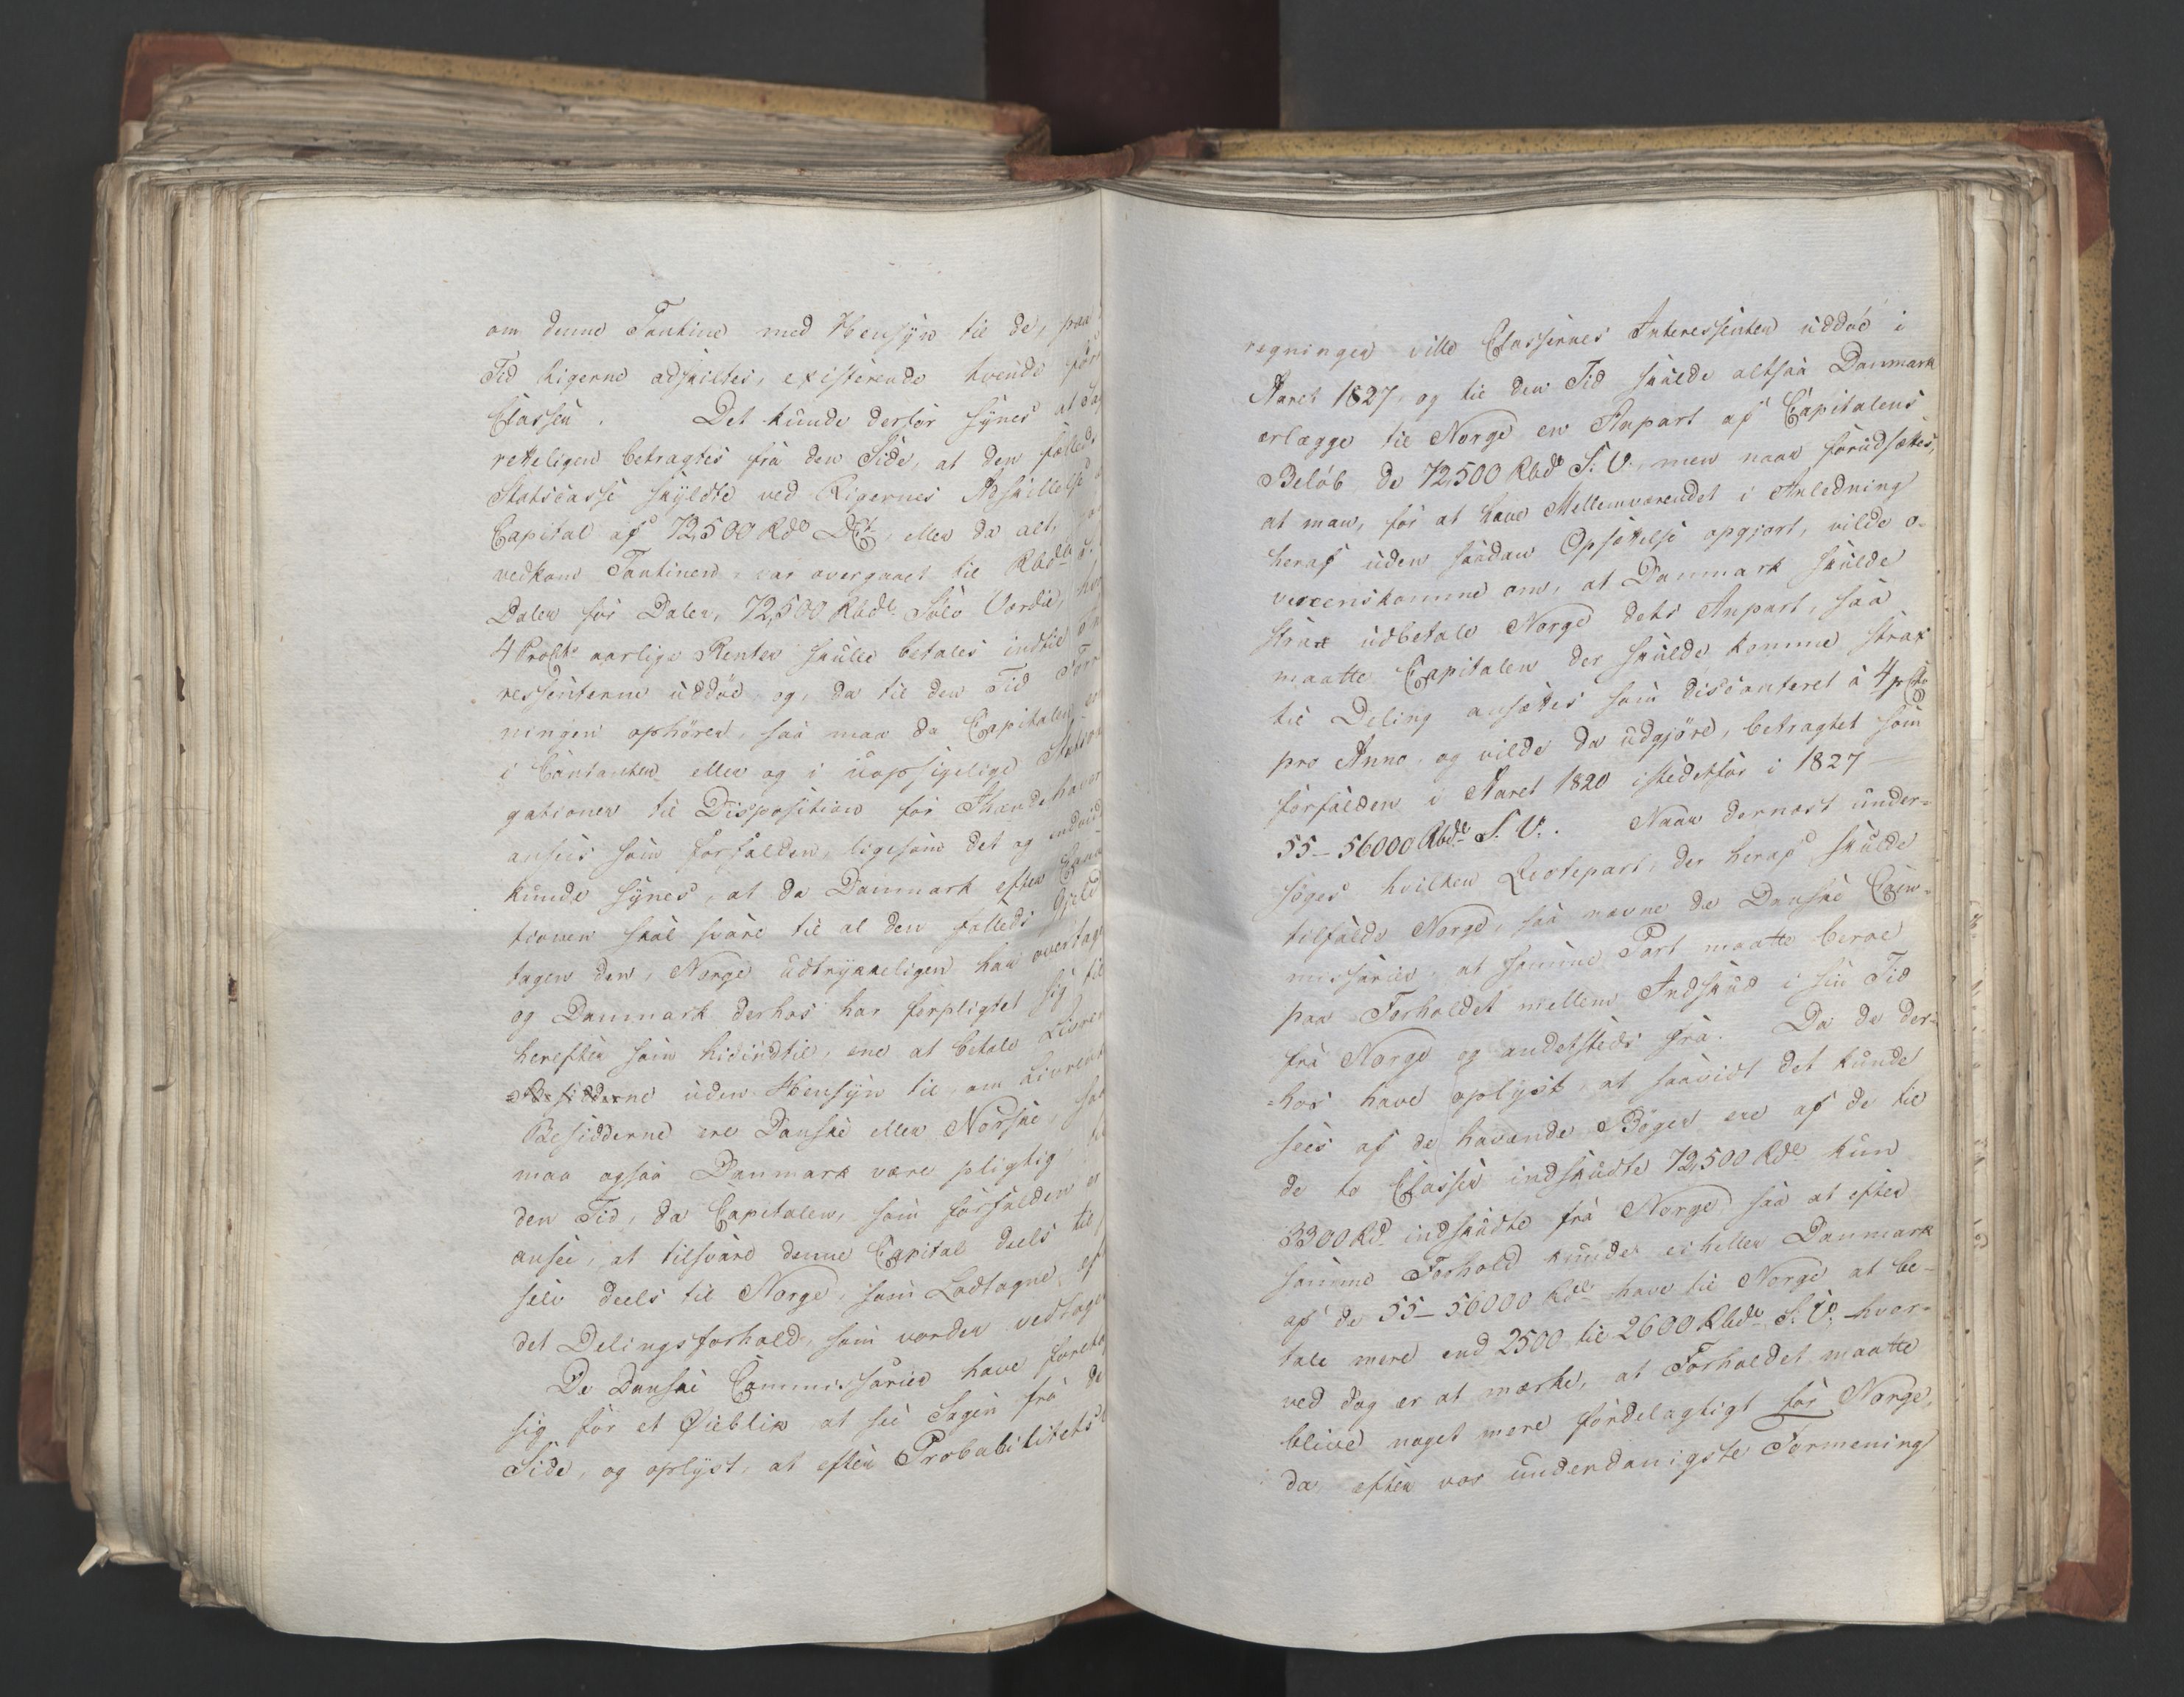 om denne Tontine med Hensyn til de, paa
Tid Rigerne adskiltes, existerende tvende för
Classer. Det kunde derfor synes at Sag
retteligen betragtes fra den Side, at den fælleds
Statscasse skyldte ved Rigernes Adskillelse
Capital af 72,500 Rdr DCt, eller da alt,
vedkom Tontinen, var overgaaet til Rbdlr S.
Daler for Daler, 72,500 Rbdlr Sölv Værdie, hvo
4 ProCto aarlige Renter skulle betales indtil In
ressenterne uddöe og, da til den Tid Forr
ningen ophörer, saa maa da Capitalen en
i Contanter eller og i uopsigelige Statsob
gationer til Disposition for Ihændehaver
ansees som forfalden, ligesom det og endvid
kunde synes, at da Danmark efter Conv
tionen skal svare til al den fælleds Gjeld
tagen den, Norge udtrykkeligen har overtage
og Danmark derhos har forpligtet sig til
herefter som hidindtil, ene at betale Livren
Besidderne uden Hensyn til om Livrent
Besidderne ere Danske eller Norske, saa
maa ogsaa Danmark være pligtig
den Tid, da Capitalen, som forfalden er
ansee, at tilsvare denne Capital deels til
selv deels til Norge, som Lodtagne, ef
det Delingsforhold, som vorder vedtage
De Danske Commissarier have foresat
sig for et Øieblik at see Sagen fra de
Side, og oplyst, at efter Probabilitets
regninger ville Classernes Interessenter uddöe i
Aaret 1827, og til den Tid skulde altsaa Danmark
erlægge til Norge en Anpart af Capitalens
Belöb de 72,500 Rbdr S. V., men naar forudsættes,
at man, for at have Mellemværendet i Anledning
heraf uden saadan Opsættelse opgjort, vilde o-
vereenskomme om, at Danmark skulde
strax udbetale Norge dets Anpart, saa
maatte Capitalen der skulde komme strax
til Deling ansættes som disconteret à 4 pCto
pro Anno, og vilde da udgjöre, betragtet som
forfalden i Aaret 1820 istedetfor i 1827
55-56000 Rbdlr S. V. Naar dernæst under-
söges hvilken Qvotepart, der heraf skulde
tilfalde Norge, saa mene de Danske Com-
missarier, at samme Part maatte beroe
paa Forholdet mellem Indskud i sin Tid
fra Norge og andetsteds fra. Da de der-
hos have oplyst, at saavidt det kunde
sees af de havende Böger ere af de til
de to Classer indskudte 72,500 Rdlr kun
3300 Rd indskudte fra Norge saa at efter
samme Forhold kunde ei heller Danmark
af de 55-56000 Rdlr have til Norge at be-
tale mere end 2500 til 2600 Rbdlr S. V. hvor-
ved dog er at mærke, at Forholdet maatte
blive noget mere fordelagtigt for Norge,
da efter vor underdanigste Formening